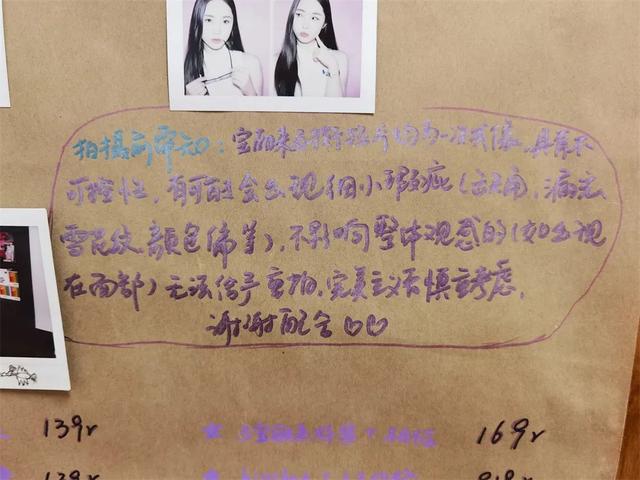 拍摄前需知：宝丽来每张相片均为一次成像，具有不
可控性，有可能会出现细小瑕疵（
雪花纹，颜色偏等），不影响整体观感的（如出现
在面部）无法给予重拍，完美主义者慎重考虑，
谢谢配合♡♡
139r
169r
139r